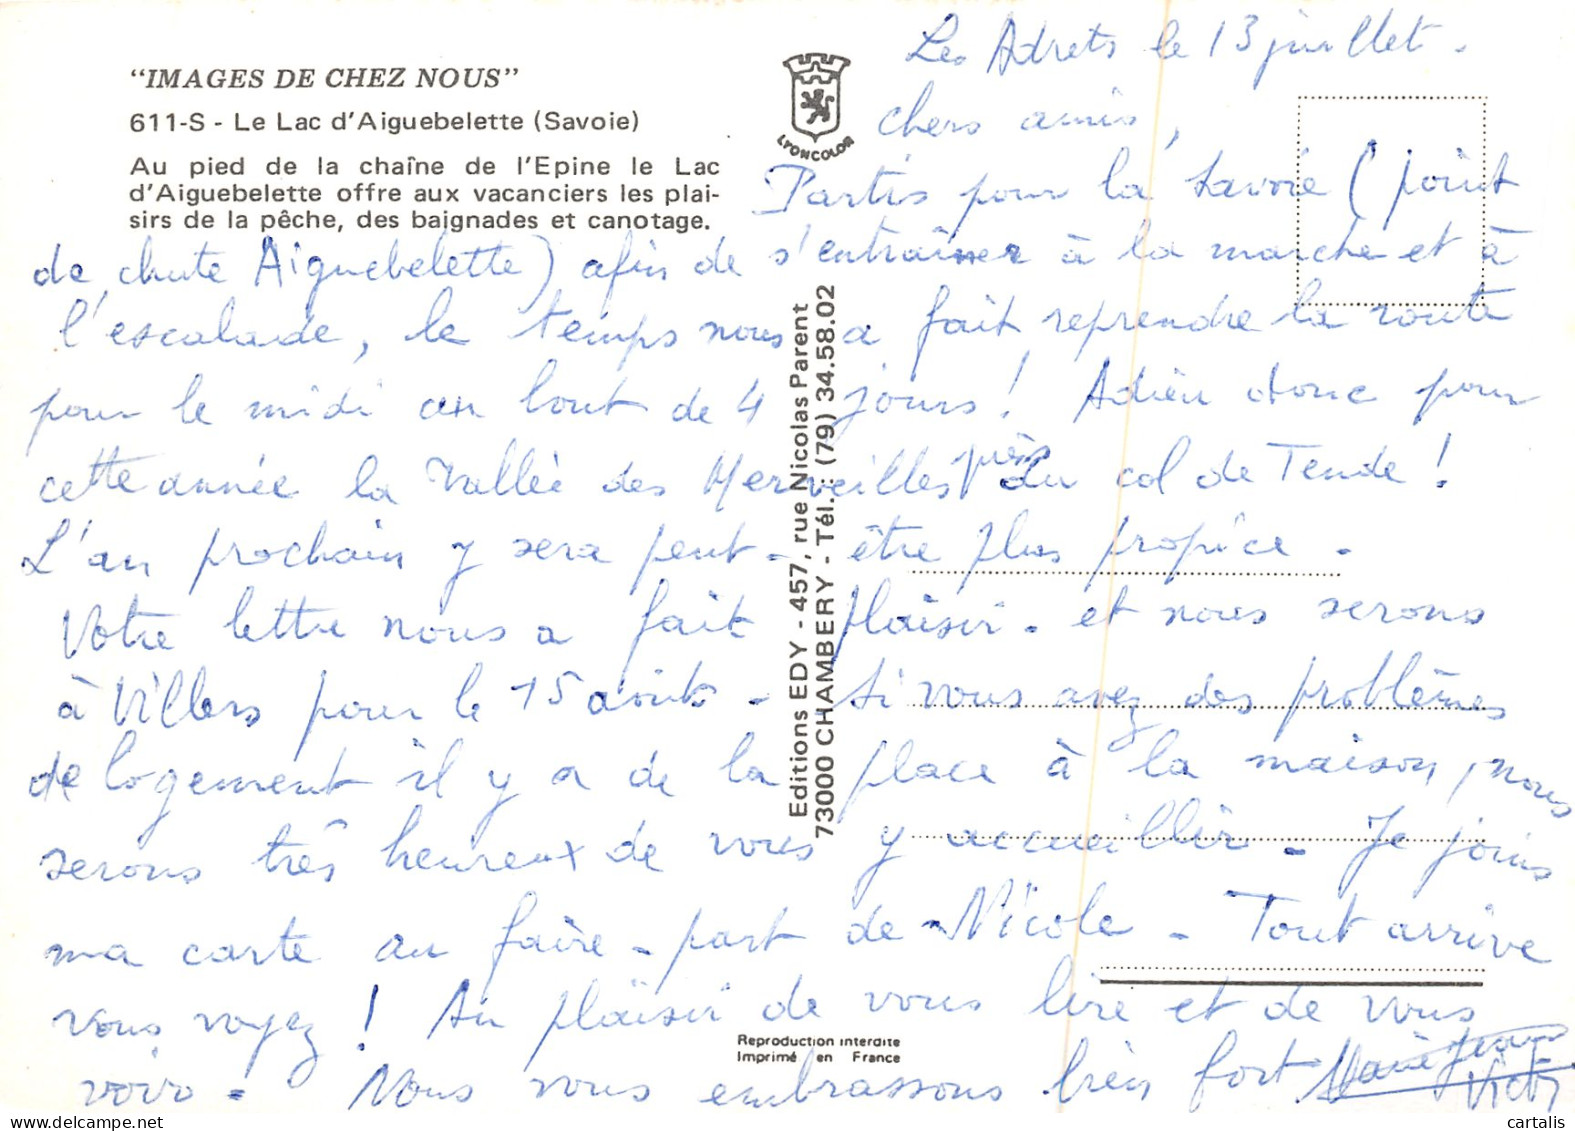 "IMAGES DE CHEZ NOUS"
611-S - Le Lac d'Aiguebelette (Savoie)
Au pied de la chaîne de l'Epine le Lac
d'Aiguebelette offre aux vacanciers les plai-
sirs de la pêche, des baignades et canotage.
LYONCOLOR
Les Adrets le 13 juillet.
Chers amis,
Partis pour la Savoie (point
de chute Aiguebelette) afin de s'entraîner à la marche et à
l'escalade, le temps nous a fait reprendre la route
pour le midi au bout de 4 jours! Adieu donc pour
cette année la Vallée des Merveilles près du col de Tende!
L'an prochain y sera peut-être plus propice.
Votre lettre nous a fait plaisir. et nous serons
à Villers pour le 15 août - Si vous avez des problèmes
de logement il y a de la place à la maison, nous
serons très heureux de vous y accueillir. Je joins
ma carte au faire-part de Nicole - Tout arrive
vous voyez! Au plaisir de vous lire et de vous
voir - Nous vous embrassons bien fort
Editions EDY - 457, rue Nicolas Parent
73000 CHAMBERY - Tél. : (79) 34.58.02
Reproduction interdite
Imprimé en France
cartalis